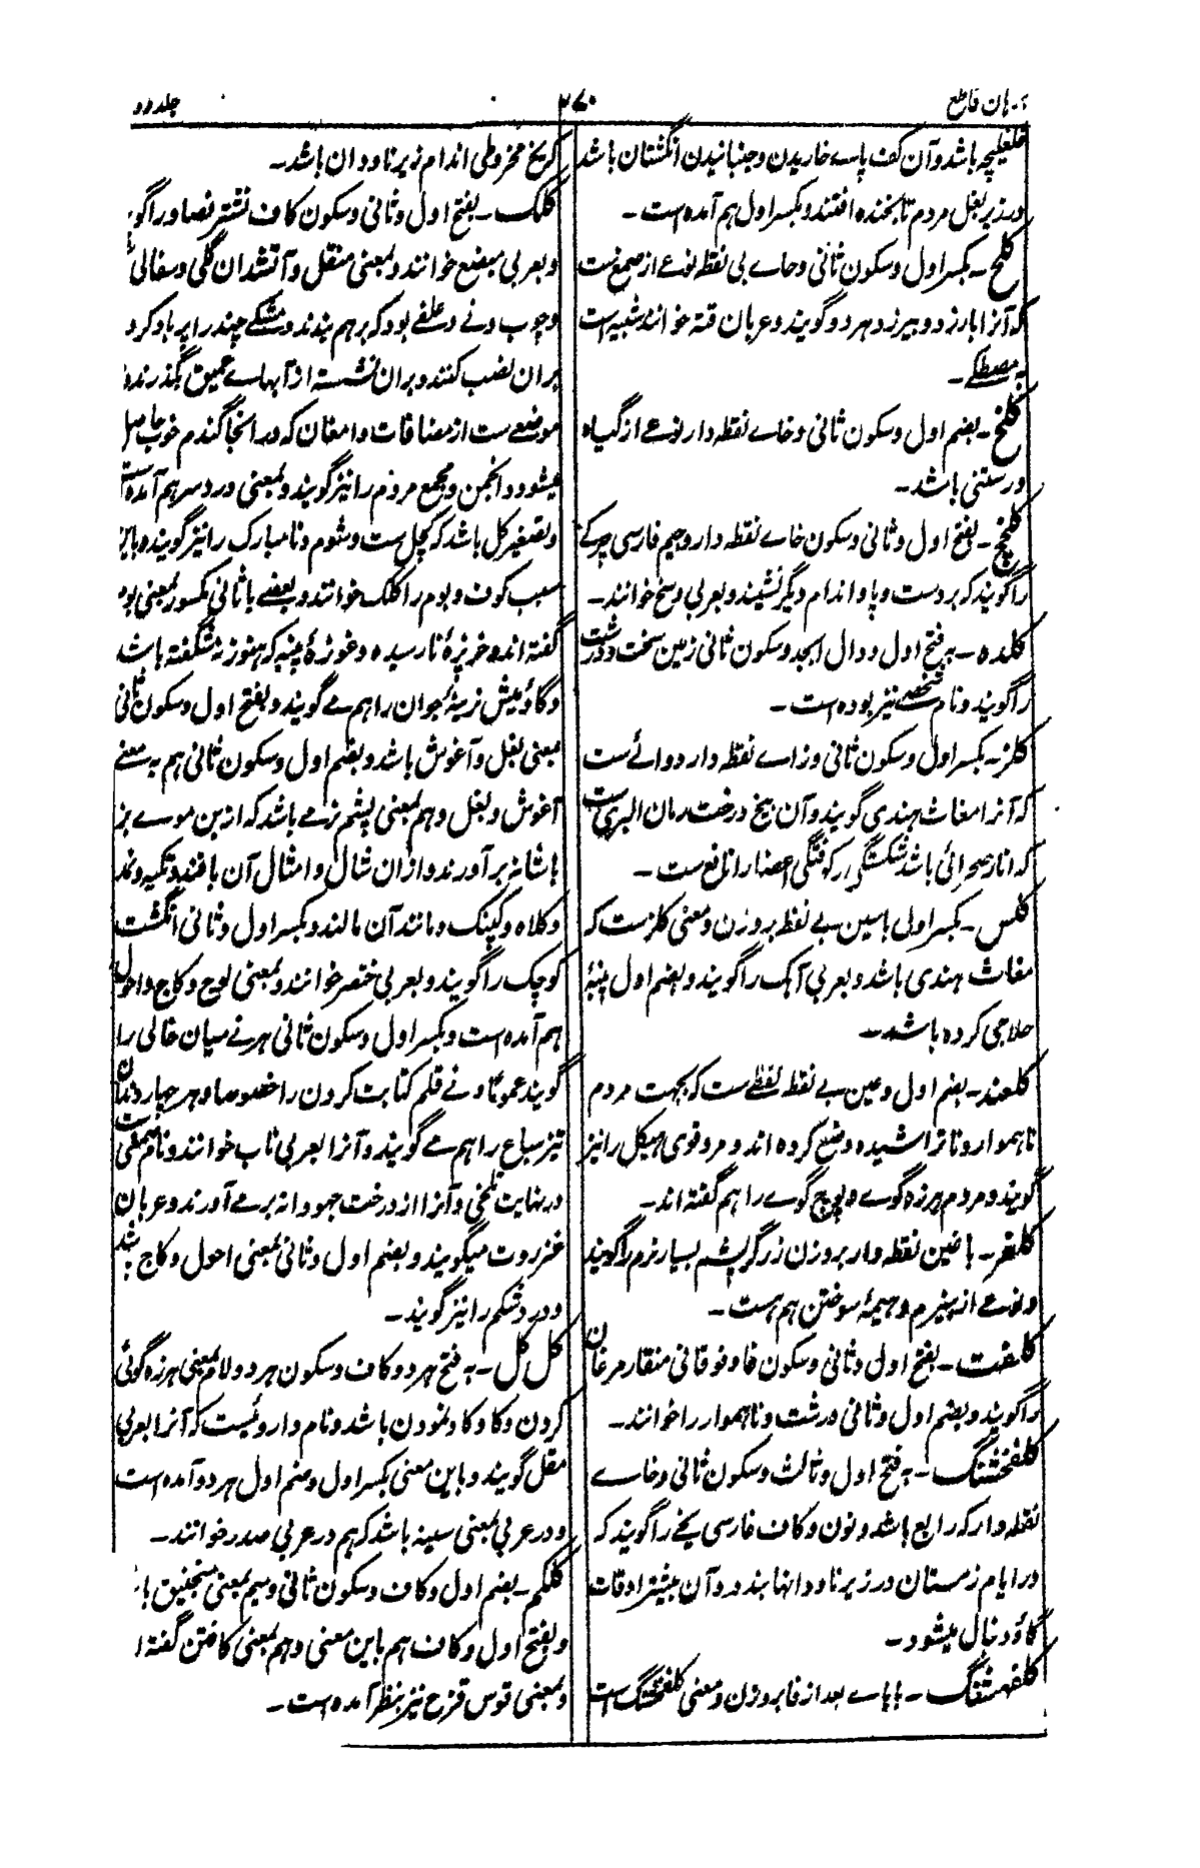 برهان قاطع
۲۷۰
جلد دو
غلغلیچه باشد و آن کف پاے خاریدن و جنبانیدن انگشتان باشد
در زیر بغل مردم تا بخنده افتند و بکسر اول هم آمده است۔
کلح۔ بکسر اول و سکون ثانی و حاے بی نقطه نوعے از صمغ ست
که آنرا بارزد و بیرزد هر دو گویند و عربان قنه خوانند شبیه است
به مصطکے۔
کلخ۔ بضم اول و سکون ثانی و خاے نقطه دار نوعے از گیاه
و رستنی باشد۔
کلخچ۔ بفتح اول و ثانی و سکون خاے نقطه دار و جیم فارسی چرکے
را گویند که بر دست و پا و اندام دیگر نشیند و بعربی وسخ خوانند۔
کلده۔ به فتح اول و دال ابجد و سکون ثانی زمین سخت و درشت
را گویند و نام شخصے نیز بوده است۔
کلز۔ بکسر اول و سکون ثانی و زاے نقطه دار دوائے ست
که آنرا مغاث هندی گویند و آن بیخ درخت رمان البری ست
که انار صحرائی باشد شکستگی و کوفتگی اعضا را نافع ست۔
کلس۔ بکسر اولی با سین بے نقط بر وزن و معنی کلز ست که
مغاث هندی باشد و بعربی آهک را گویند و بضم اول پنبهٔ
حلاجی کرده باشد۔
کلعند۔ بضم اول و عین بے نقط لفظے ست که بجهت مردم
ناهموار و ناتراشیده وضع کرده اند و مرد قوی هیکل را نیز
گویند و مردم هرزه گوے و پوچ گوے را هم گفته اند۔
کلغر۔ با غین نقطه دار بر وزن زرگر پشم بسیار نرم را گویند
و نوعے از هیزم و هیمهٔ سوختن هم هست۔
کلفت۔ بفتح اول و ثانی و سکون فا و فوقانی منقار مرغان
را گویند و بضم اول و ثانی درشت و ناهموار را خوانند۔
کلفخشنگ۔ به فتح اول و ثالث و سکون ثانی و خاے
نقطه دار که رابع باشد و نون و کاف فارسی یخے را گویند که
در ایام زمستان در زیر ناودانها بندد و آن بیشتر اوقات
گاودنبال میشود۔
کلفهشنگ۔ با هاے بعد از فا بر وزن و معنی کلفخشنگ است
که یخ مخروطی اندام زیر ناودان باشد۔
کلک۔ بفتح اول و ثانی و سکون کاف نشتر فصاد را گویند
و بعربی مبضع خوانند و بمعنی منقل و آتشدان گلی و سفالی
و چوب و نے و علفے بود که برهم بندند و مشکے چند را پر باد کرده
بران نصب کنند و بران نشسته از آبهاے عمیق بگذرند و
موضعے ست از مضافات دامغان که در انجا گندم خوب حاصل
میشود و انجمن و مجمع مردم را نیز گویند و بمعنی درد سر هم آمده است
و تصغیر کل باشد که کچل ست و شوم و نامبارک را نیز گویند و باین
سبب کوف و بوم را کلک خوانند و بعضے با ثانی مکسور بمعنی بوم
گفته اند و خربزهٔ نارسیده و غوزهٔ پنبه که هنوز نشگفته باشد
و گاؤمیش نرینهٔ جوان را هم مے گویند و بفتح اول و سکون ثانی
بمعنی بغل و آغوش باشد و بضم اول و سکون ثانی هم به معنے
آغوش و بغل و هم بمعنی پشم نرمے باشد که از بن موے بز
با شانه برآورند و ازان شال و امثال آن بافند و تکیه و نمد
و کلاه و کپنک و مانند آن مالند و بکسر اول و ثانی انگشت
کوچک را گویند و بعربی خنصر خوانند و بمعنی لوچ و کاج و احول
هم آمده است و بکسر اول و سکون ثانی هر نے میان خالی را
گویند عموماً و نے قلم کتابت کردن را خصوصا و هر چهار دندان
تیز سباع را هم مے گویند و آنرا بعربی ناب خوانند و نام صمغی ست
در نهایت تلخی و آنرا از درخت جهودانه برمے آورند و عربان
عنزروت میگویند و بضم اول و ثانی بمعنی احول و کاج باشد
و درد شکم را نیز گویند۔
کل کل۔ به فتح هر دو کاف و سکون هر دو لام بمعنی هرزه گوئی
کردن و کاوکاو نمودن باشد و نام داروئیست که آنرا بعربی
مقل گویند و باین معنی بکسر اول و ضم اول هر دو آمده است
و در عربی بمعنی سینه باشد که هم در عربی صدر خوانند۔
کلکم۔ بضم اول و کاف و سکون ثانی و میم بمعنی منجنیق با
و بفتح اول و کاف هم باین معنی و هم بمعنی کافتن گفته ا
و بمعنی قوس قزح نیز بنظر آمده است۔